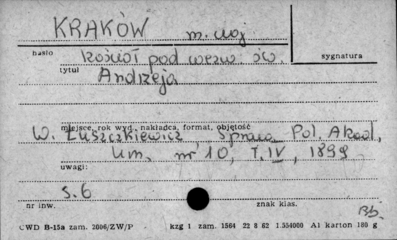 KRAKÓW m. woj
hasło kościół pod wezw. św.
sygnatura
tytuł Andrzeja
miejsce, rok wyd., nakładca, format, objętość
W. Łuszczkiewicz, Spraw. Pol. Akad.
Um. nr 10, T. IV, 1899
uwagi:
s. 6
nr inw.
znak klas.
CWD B-15a zam. 3006/ZW/P kzg 1 zam. 1564 22 8 62 1.554000 A1 karton 180 g